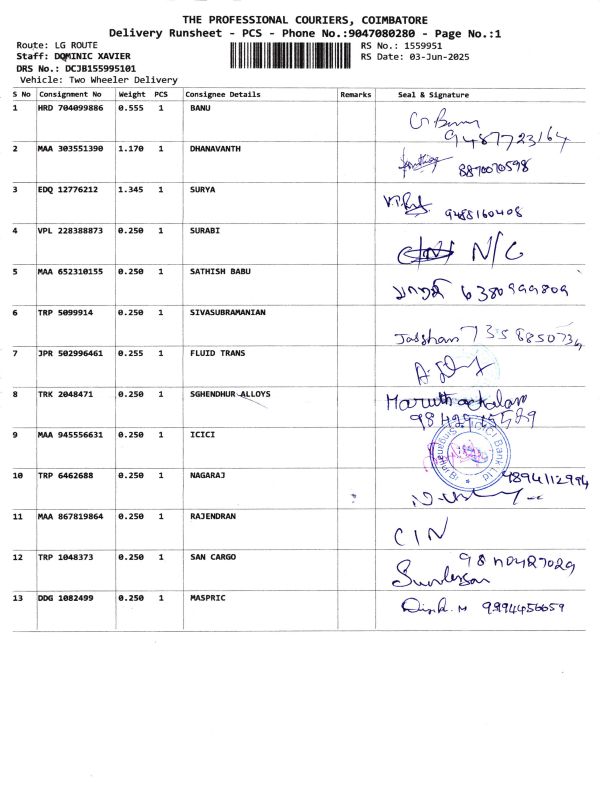 THE PROFESSIONAL COURIERS, COIMBATORE
Delivery Runsheet - PCS - Phone No.:9047080280 - Page No.:1
Route: LG ROUTE
Staff: DOMINIC XAVIER
DRS No.: DCJB155995101
Vehicle: Two Wheeler Delivery
RS No.: 1559951
RS Date: 03-Jun-2025
S No Consignment No Weight PCS Consignee Details Remarks Seal & Signature
1 HRD 704099886 0.555 1 BANU
9487723164
2 MAA 303551390 1.170 1 DHANAVANTH
8870070598
3 EDQ 12776212 1.345 1 SURYA
9488160408
4 VPL 228388873 0.250 1 SURABI
N/C
5 MAA 652310155 0.250 1 SATHISH BABU
6380999809
6 TRP 5099914 0.250 1 SIVASUBRAMANIAN
7 JPR 502996461 0.255 1 FLUID TRANS
8 TRK 2048471 0.250 1 SGHENDHUR ALLOYS
9 MAA 945556631 0.250 1 ICICI
ICICI Bank Ltd
10 TRP 6462688 0.250 1 NAGARAJ
11 MAA 867819864 0.250 1 RAJENDRAN
C I N
12 TRP 1048373 0.250 1 SAN CARGO
13 DDG 1082499 0.250 1 MASPRIC
9994456659